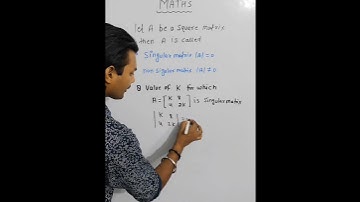 MATHS
let A be a square matrix
then A is called
Singular matrix |A| = 0
non singular matrix |A| ≠ 0
Q Value of K for which
A = [K 8
4 2K] is singular matrix
|K 8
4 2K|